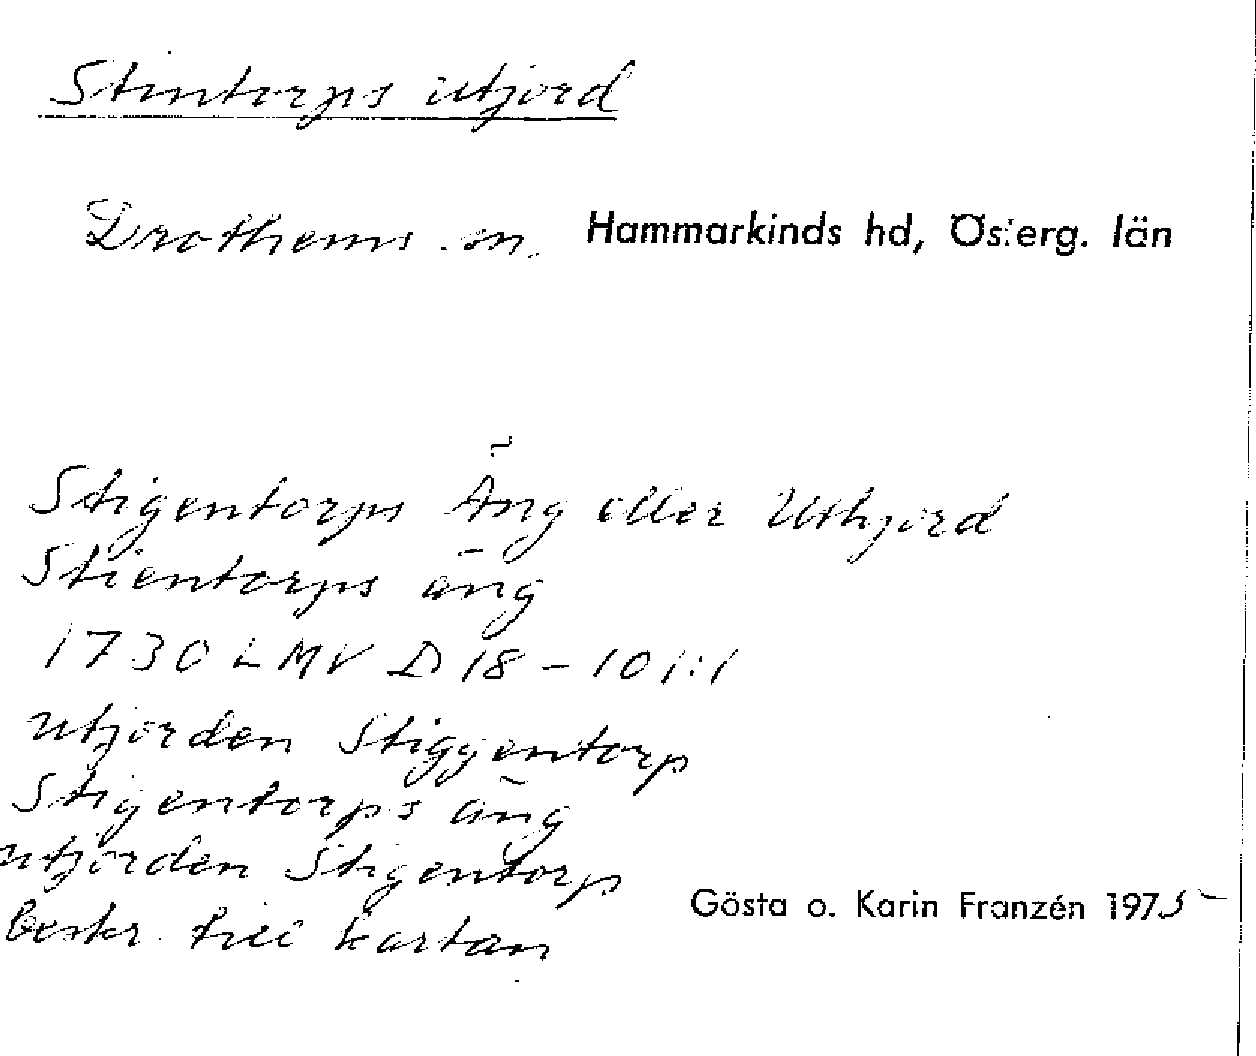 Stintorps utjord
Drothems sn. Hammarkinds hd, Österg. län
Stigentorps Äng eller Uthjord
Stientorps äng
1730 LMV D 18-10 1:1
utjorden Stiggentorp
Stigentorps äng
utjorden Stigentorp
beskr. till kartan
Gösta o. Karin Franzén 1975